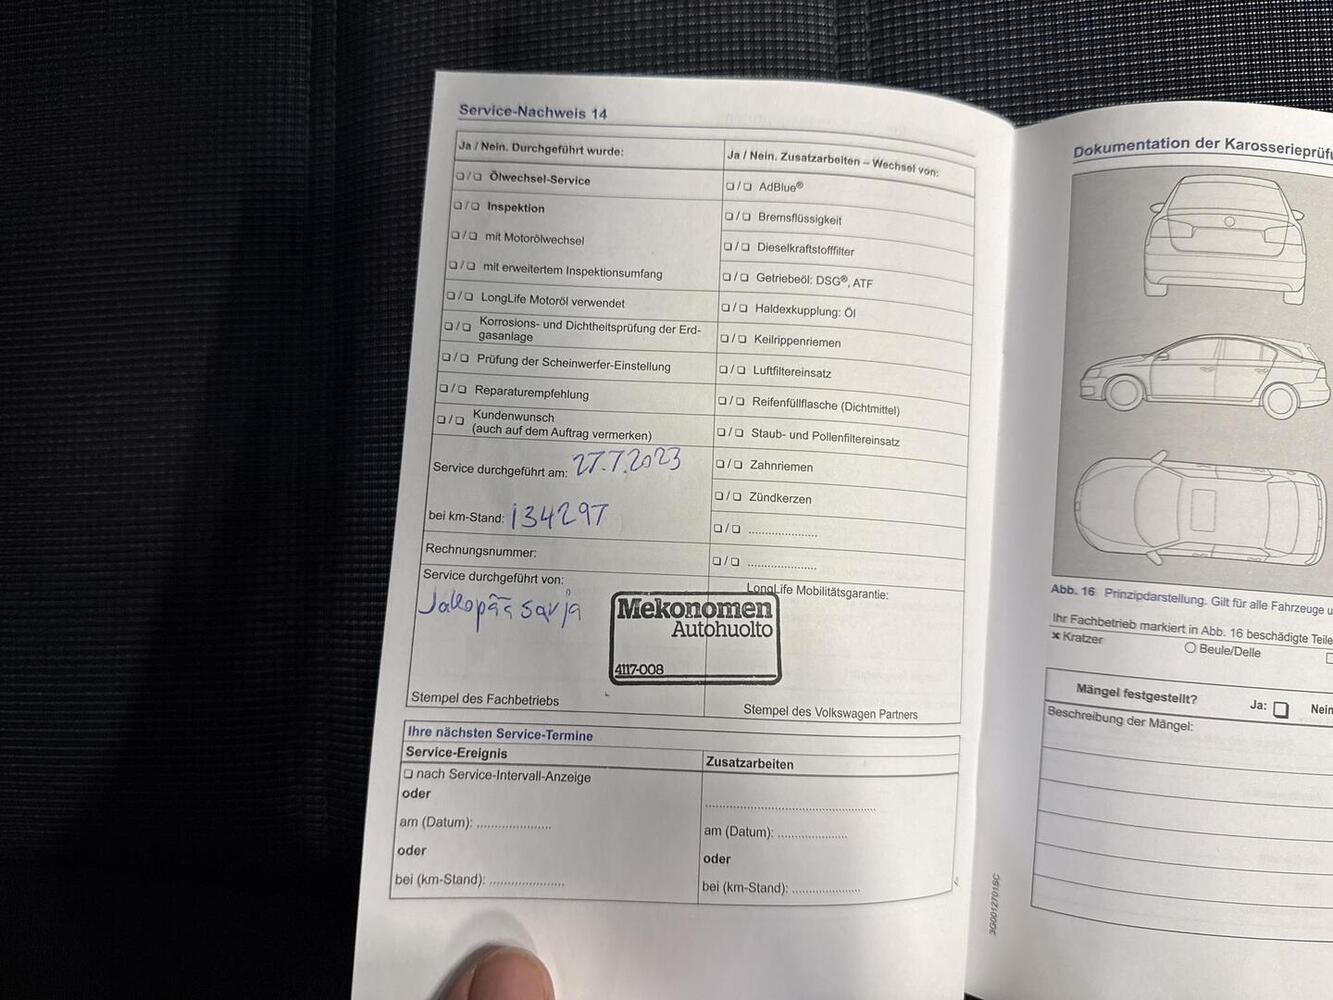 Service-Nachweis 14
Ja / Nein. Durchgeführt wurde:
❏ / ❏ Ölwechsel-Service
❏ / ❏ Inspektion
❏ / ❏ mit Motorölwechsel
❏ / ❏ mit erweitertem Inspektionsumfang
❏ / ❏ LongLife Motoröl verwendet
❏ / ❏ Korrosions- und Dichtheitsprüfung der Erd-
gasanlage
❏ / ❏ Prüfung der Scheinwerfer-Einstellung
❏ / ❏ Reparaturempfehlung
❏ / ❏ Kundenwunsch
(auch auf dem Auftrag vermerken)
Service durchgeführt am: 27.7.2023
bei km-Stand: 134297
Rechnungsnummer:
Service durchgeführt von:
Jakopääsarja
Stempel des Fachbetriebs
Ja / Nein. Zusatzarbeiten – Wechsel von:
❏ / ❏ AdBlue®
❏ / ❏ Bremsflüssigkeit
❏ / ❏ Dieselkraftstofffilter
❏ / ❏ Getriebeöl: DSG®, ATF
❏ / ❏ Haldexkupplung: Öl
❏ / ❏ Keilrippenriemen
❏ / ❏ Luftfiltereinsatz
❏ / ❏ Reifenfüllflasche (Dichtmittel)
❏ / ❏ Staub- und Pollenfiltereinsatz
❏ / ❏ Zahnriemen
❏ / ❏ Zündkerzen
❏ / ❏ ....................
❏ / ❏ ....................
LongLife Mobilitätsgarantie:
Mekonomen
Autohuolto
4117-008
Stempel des Volkswagen Partners
Ihre nächsten Service-Termine
Service-Ereignis
❏ nach Service-Intervall-Anzeige
oder
am (Datum): ....................
oder
bei (km-Stand): ....................
Zusatzarbeiten
..................................................
am (Datum): ....................
oder
bei (km-Stand): ....................
3G0012701SC
Dokumentation der Karosserieprüf
Abb. 16 Prinzipdarstellung. Gilt für alle Fahrzeuge u
Ihr Fachbetrieb markiert in Abb. 16 beschädigte Teile
✖ Kratzer
○ Beule/Delle
Mängel festgestellt? Ja: ❏ Nein
Beschreibung der Mängel: